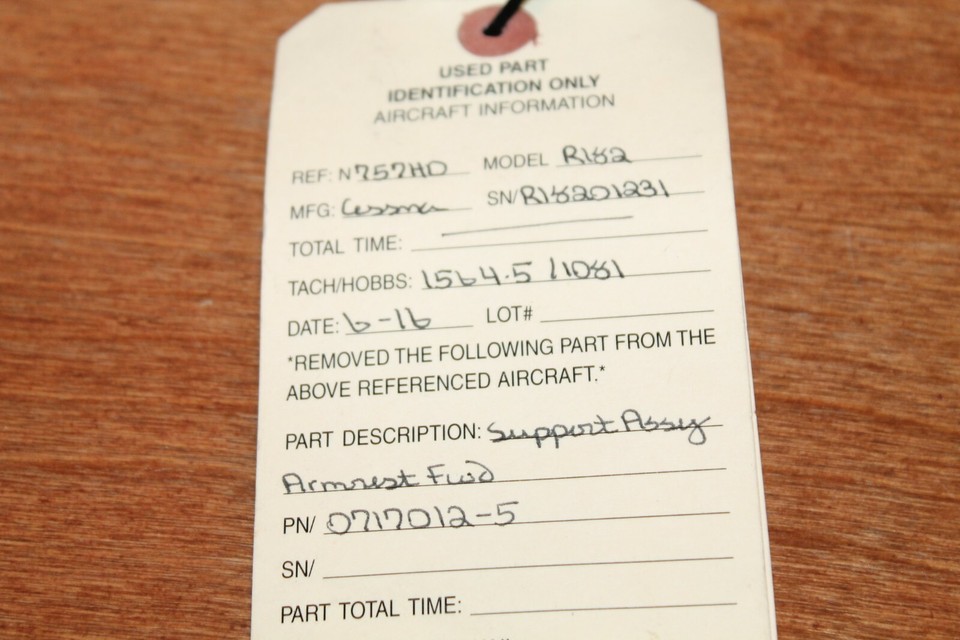 USED PART
IDENTIFICATION ONLY
AIRCRAFT INFORMATION
REF: N757HD MODEL R182
MFG: Cessna SN/R18201231
TOTAL TIME:
TACH/HOBBS: 1564.5 /1081
DATE: 6-16 LOT#
*REMOVED THE FOLLOWING PART FROM THE
ABOVE REFERENCED AIRCRAFT.*
PART DESCRIPTION: Support Assy
Armrest Fwd
PN/ 0717012-5
SN/
PART TOTAL TIME: